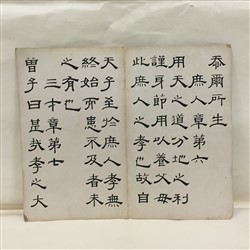 忝爾所生
庶人章第六
用天之道分地之利
謹身節用以養父母
此庶人之孝也故自
天子至於庶人孝無
終始而患不及者未
之有也
三才章第七
曾子曰甚哉孝之大